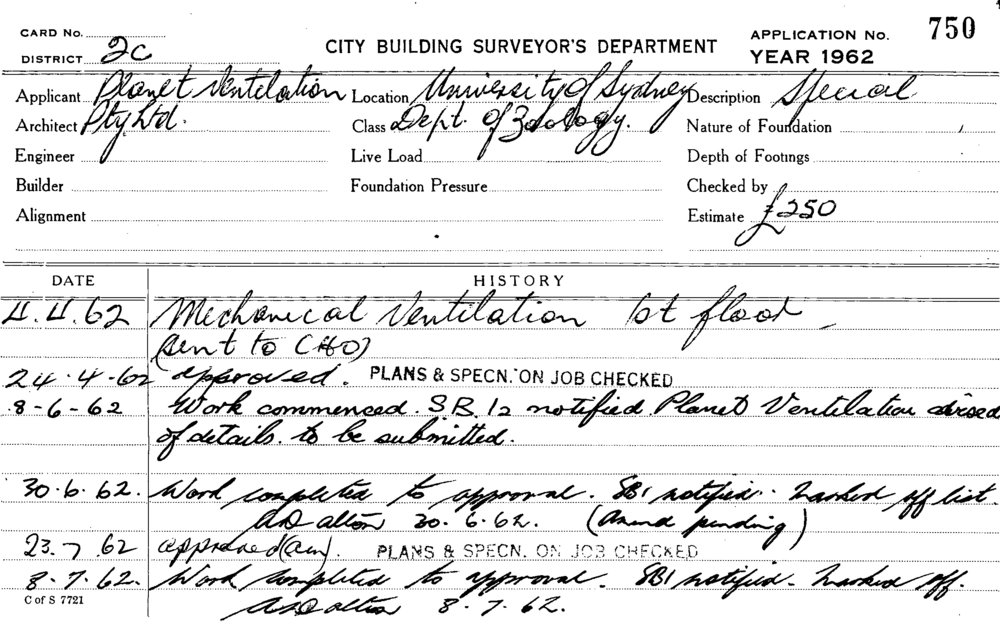 CARD No.
DISTRICT 2C
CITY BUILDING SURVEYOR'S DEPARTMENT
APPLICATION No. 750
YEAR 1962
Applicant Planet Ventilation Location University of Sydney Description Special
Architect Pty Ltd. Class Dept. of Zoology. Nature of Foundation
Engineer Live Load Depth of Footings
Builder Foundation Pressure Checked by
Alignment Estimate £250
DATE HISTORY
4.4.62 Mechanical Ventilation 1st floor
(sent to CHO)
24.4.62 approved. PLANS & SPECN. ON JOB CHECKED
8-6-62 Work commenced. S.B. notified Planet Ventilation advised
of details to be submitted.
30.6.62. Work completed to approval. SBI notified. Marked off list.
30.6.62. (Amend pending)
23.7.62 approved (am). PLANS & SPECN. ON JOB CHECKED
8.7.62. Work completed to approval. SBI notified - Marked off.
8.7.62.
C of S 7721